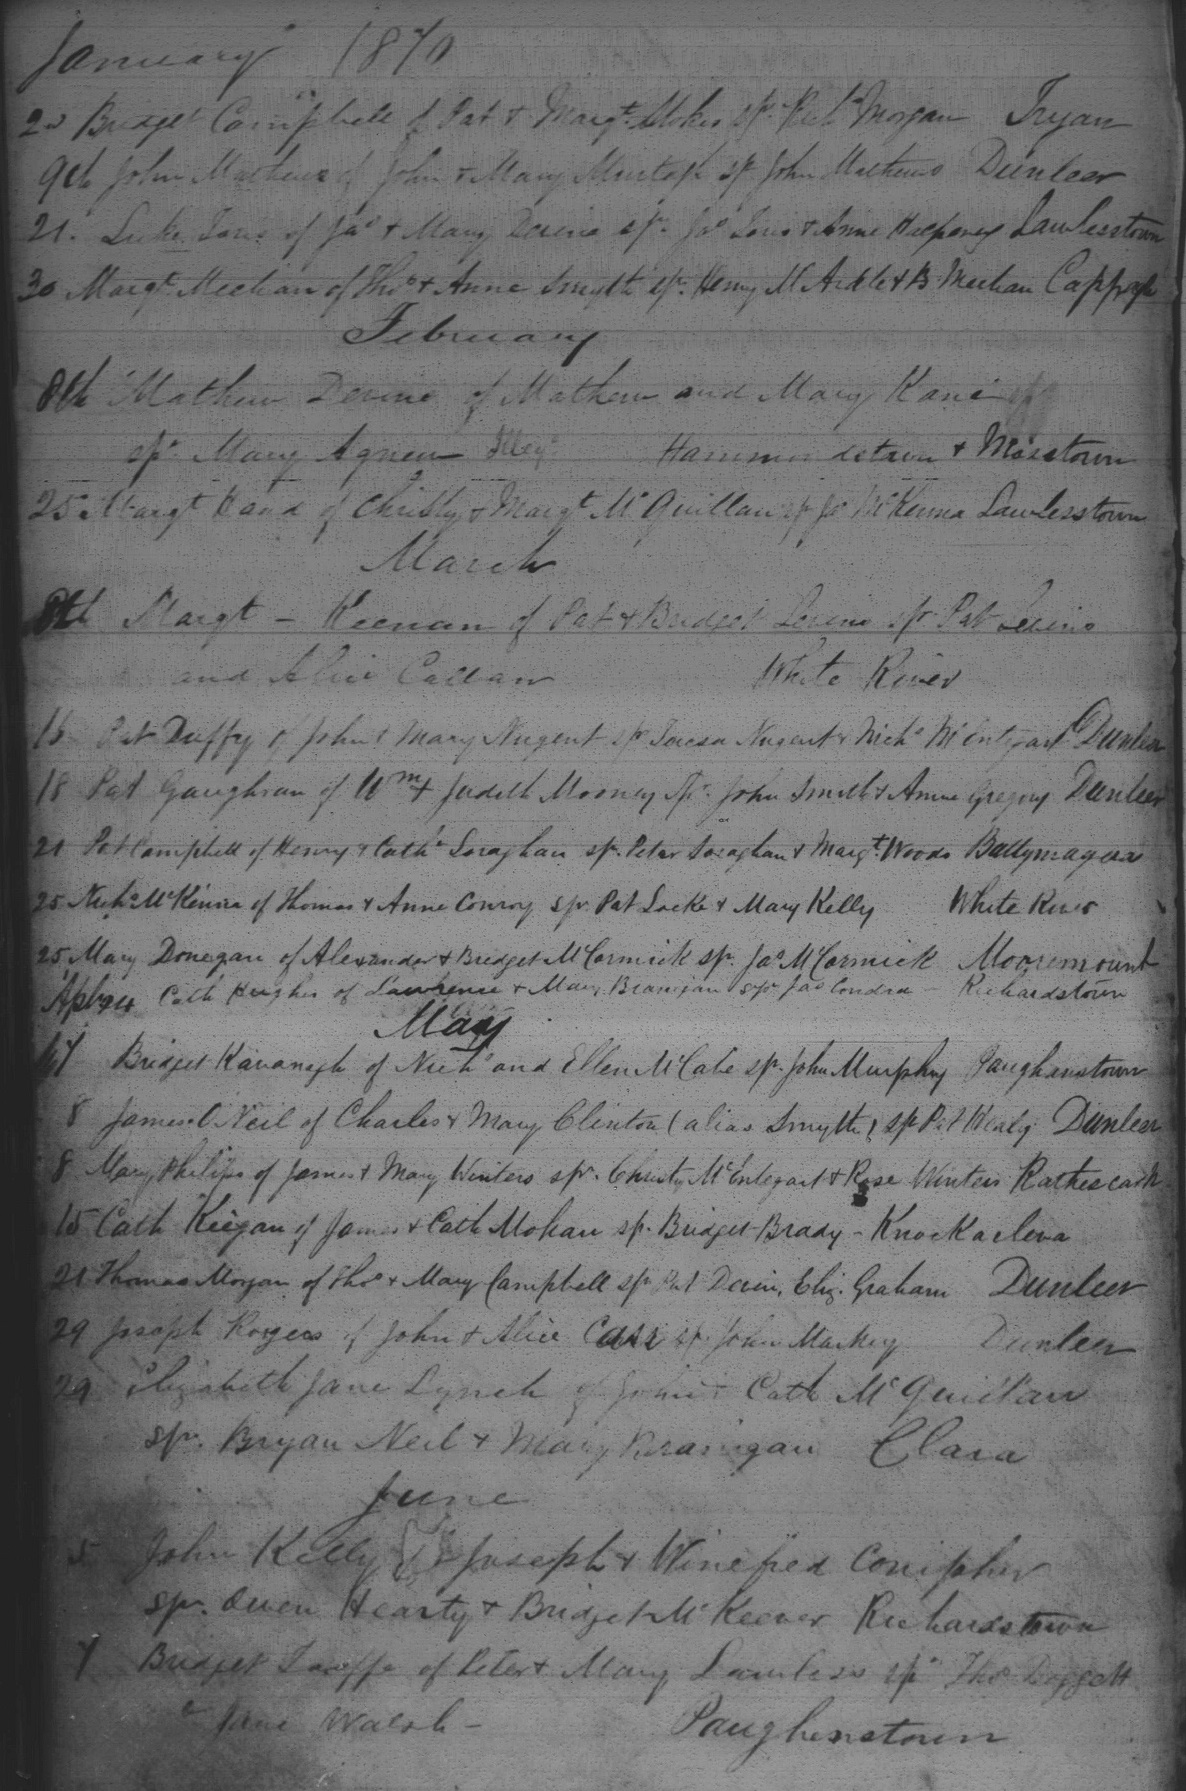 January 1870
2d Bridget Campbell of Pat & Margt. Stokes sp. Richd Morgan Tryan
9th John Mathews of John & Mary Murtagh sp John Mathews Dunleer
21. Luke of Jas & Mary Devine sp. Jas & Anne Halpeny Lawlesstown
30 Margt. Meehan of Thos & Anne Smyth sp. Henry McArdle & B. Meehan Cappogh
February
8th Mathew Devine of Mathew and Mary Kane
sp. Mary Agnew Hammondstown & Mosstown
25 Margt Hand of Christy & Margt McQuillan sp Js McKenna Lawlesstown
March
8th Margt - Keenan of Pat & Bridget Levins sp Pat Levins
and Alice Callan White River
16 Pat Duffy of John & Mary Nugent sp Teresa Nugent & Nichs McEntegart Dunleer
18 Pat Gaughran of Wm & Judith Mooney Sp. John Smith & Anne Gregory Dunleer
21 Pat Campbell of Henry & Cathe Soraghan sp. Peter Soraghan & Margt. Woods Ballymaguire
25 Nichs McKenna of Thomas & Anne Conroy sp. Pat Locke & Mary Kelly White River
25 Mary Donegan of Alexander & Bridget McCormick sp. Jas McCormick Mooremount
Apl 24 Cath Hughes of Lawrence & Mary Branigan spr Jas Condra - Richardstown
May
Bridget Kavanagh of Nichs and Ellen McCabe sp. John Murphy Paughanstown
8 James O Neil of Charles & Mary Clinton (alias Smyth) sp Pat Healy Dunleer
8 Mary Philips of James & Mary Winters sp. Christy McEntegart & Rose Winters Rathescar N
15 Cath Keegan of James & Cath Mohan sp. Bridget Brady - Knockacleva
21 Thomas Morgan of Thos & Mary Campbell sp Pat Devin, Eliz. Graham Dunleer
29 Joseph Rogers of John & Alice Carr sp. John Markey Dunleer
29 Elizabeth Jane Lynch of John & Cath McQuillan
sp. Bryan Neil & Mary Branigan Clara
June
5 John Kelly of Joseph & Winefred
sp. Owen Hearty & Bridget McKeever Richardstown
7 Bridget Taaffe of Peter & Mary Lawless sp Thos Doggett
& Jane Walsh - Paughenstown